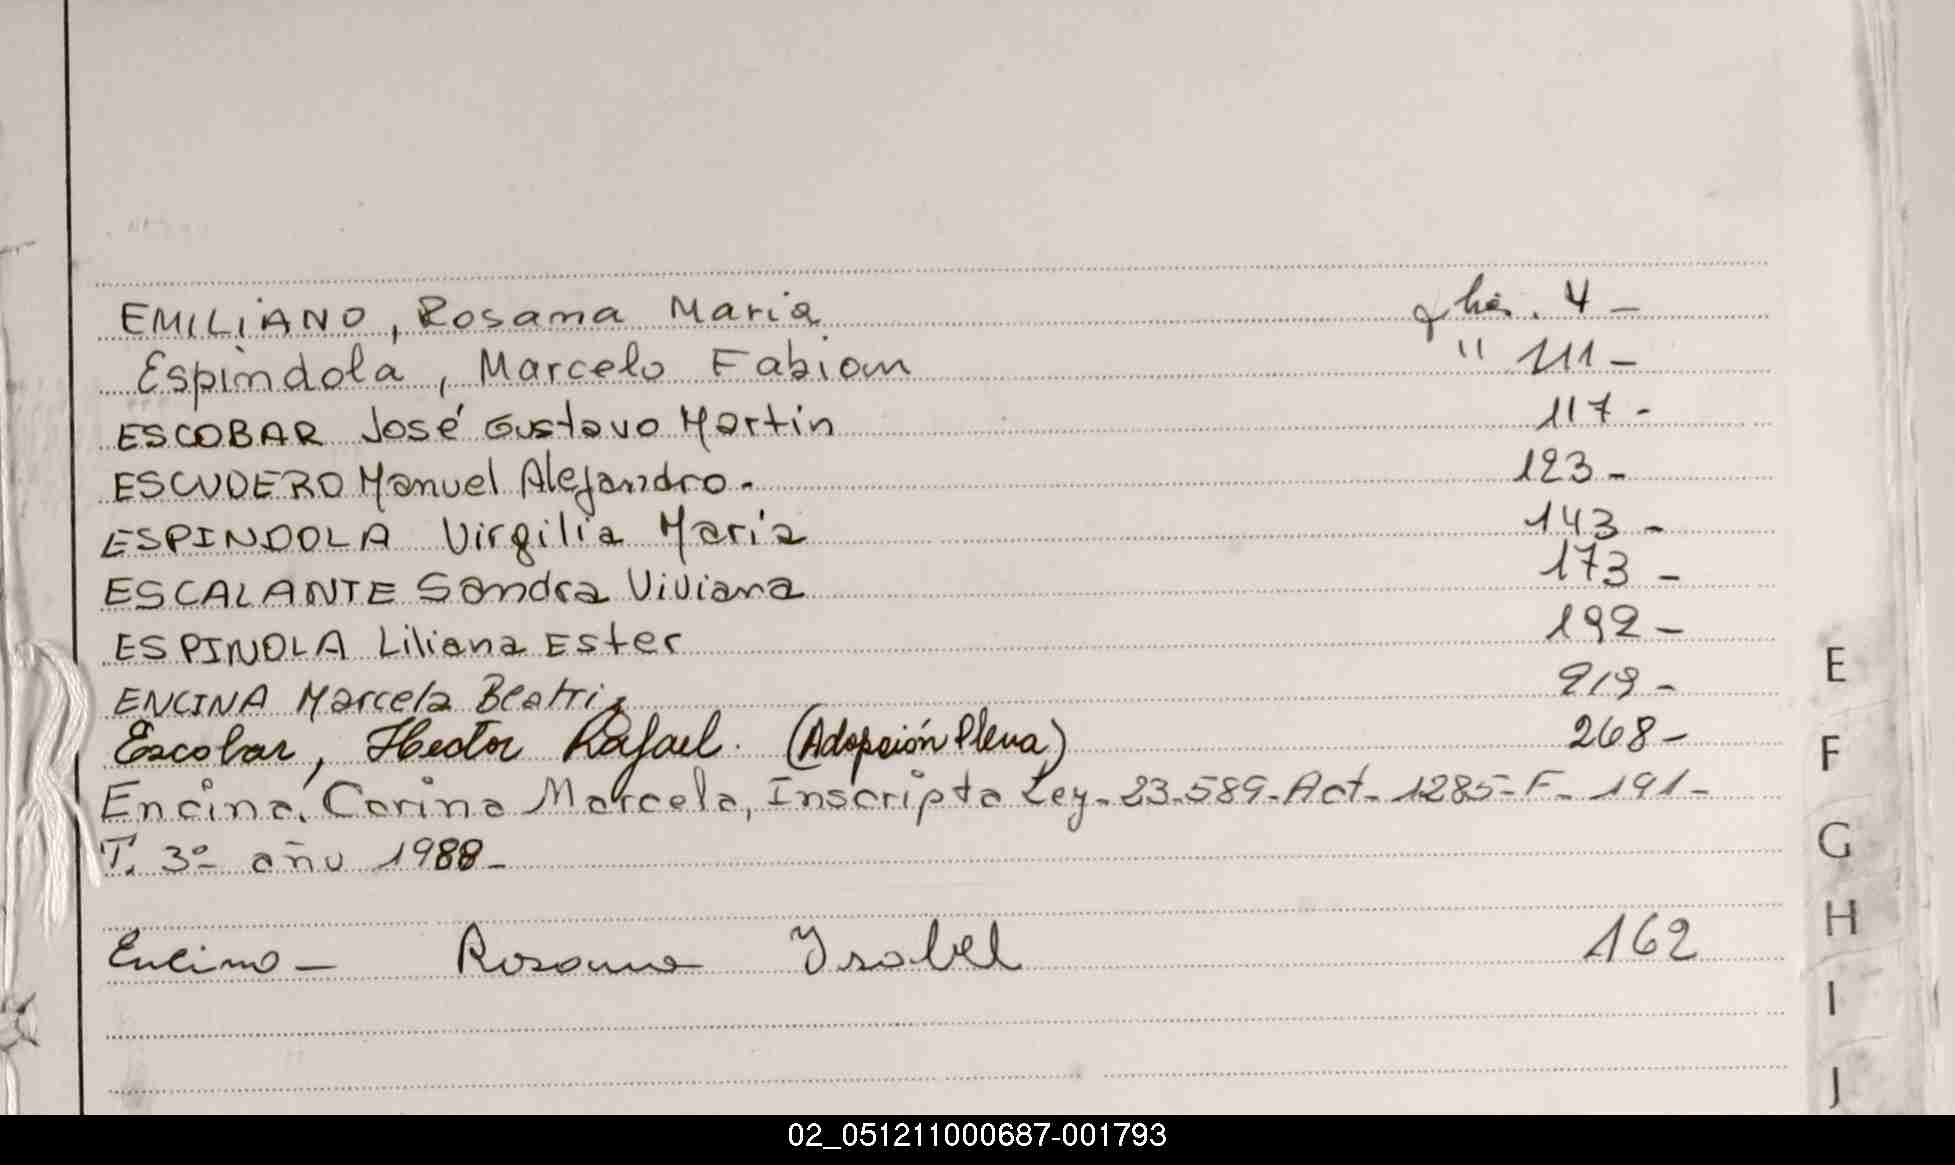 EMILIANO, Rosana Maria 4 -
Espindola, Marcelo Fabian " 111 -
ESCOBAR José Gustavo Martin 117 -
ESCUDERO Manuel Alejandro. 123 -
ESPINDOLA Virgilia María 143 -
ESCALANTE Sandra Viviana 173 -
ESPINOLA Liliana Ester 192 -
ENCINA Marcela Beatriz 219 -
Escobar, Hector Rafael. (Adopción Plena) 268 -
Encina, Carina Marcela, Inscripta Ley - 23.589 - Act - 1285 - F - 191 -
T. 3º - año 1988 -
Encina - Rosana Ysabel 162
E
F
G
H
I
J
02_051211000687-001793